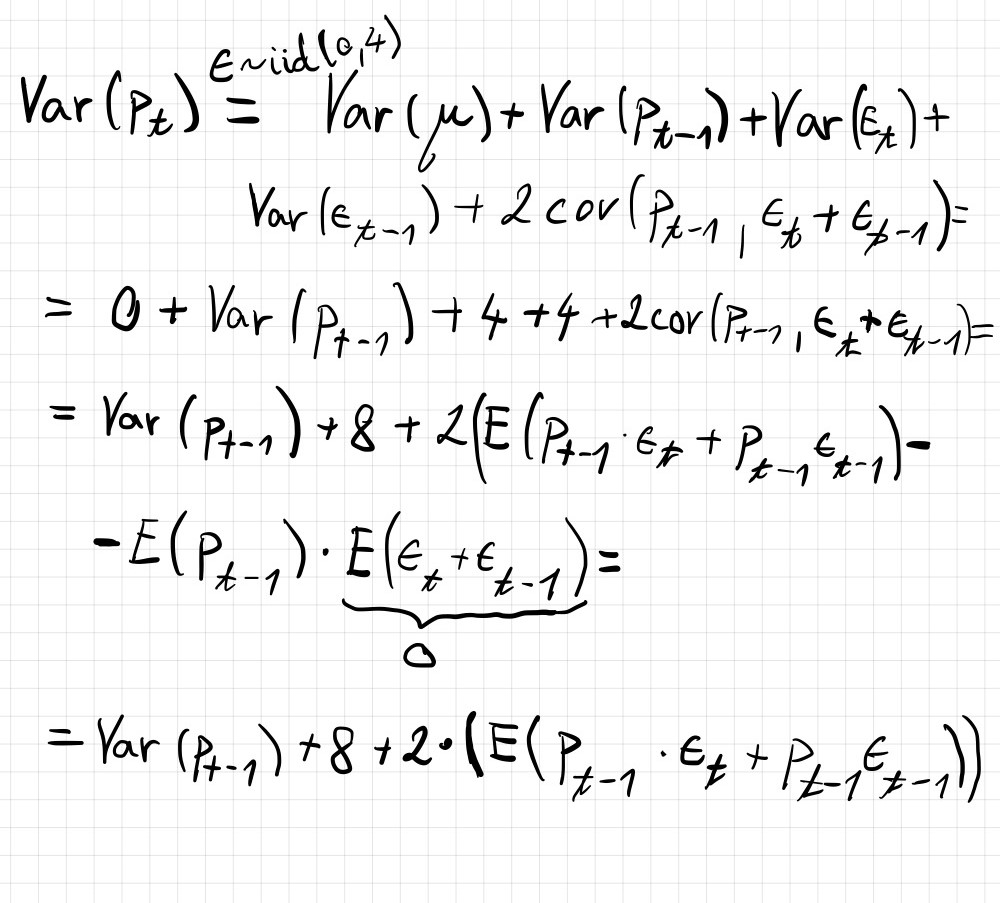 Var(P_t) = ^{ϵ~iid(0,4)} Var(μ) + Var(P_{t-1}) + Var(ϵ_t) +
Var(ϵ_{t-1}) + 2cov(P_{t-1}, ϵ_t + ϵ_{t-1}) =
= 0 + Var(P_{t-1}) + 4 + 4 + 2cov(P_{t-1}, ϵ_t + ϵ_{t-1}) =
= Var(P_{t-1}) + 8 + 2(E(P_{t-1} · ϵ_t + P_{t-1} ϵ_{t-1}) -
- E(P_{t-1}) · E(ϵ_t + ϵ_{t-1}) =
0
= Var(P_{t-1}) + 8 + 2·(E(P_{t-1} · ϵ_t + P_{t-1} ϵ_{t-1}))